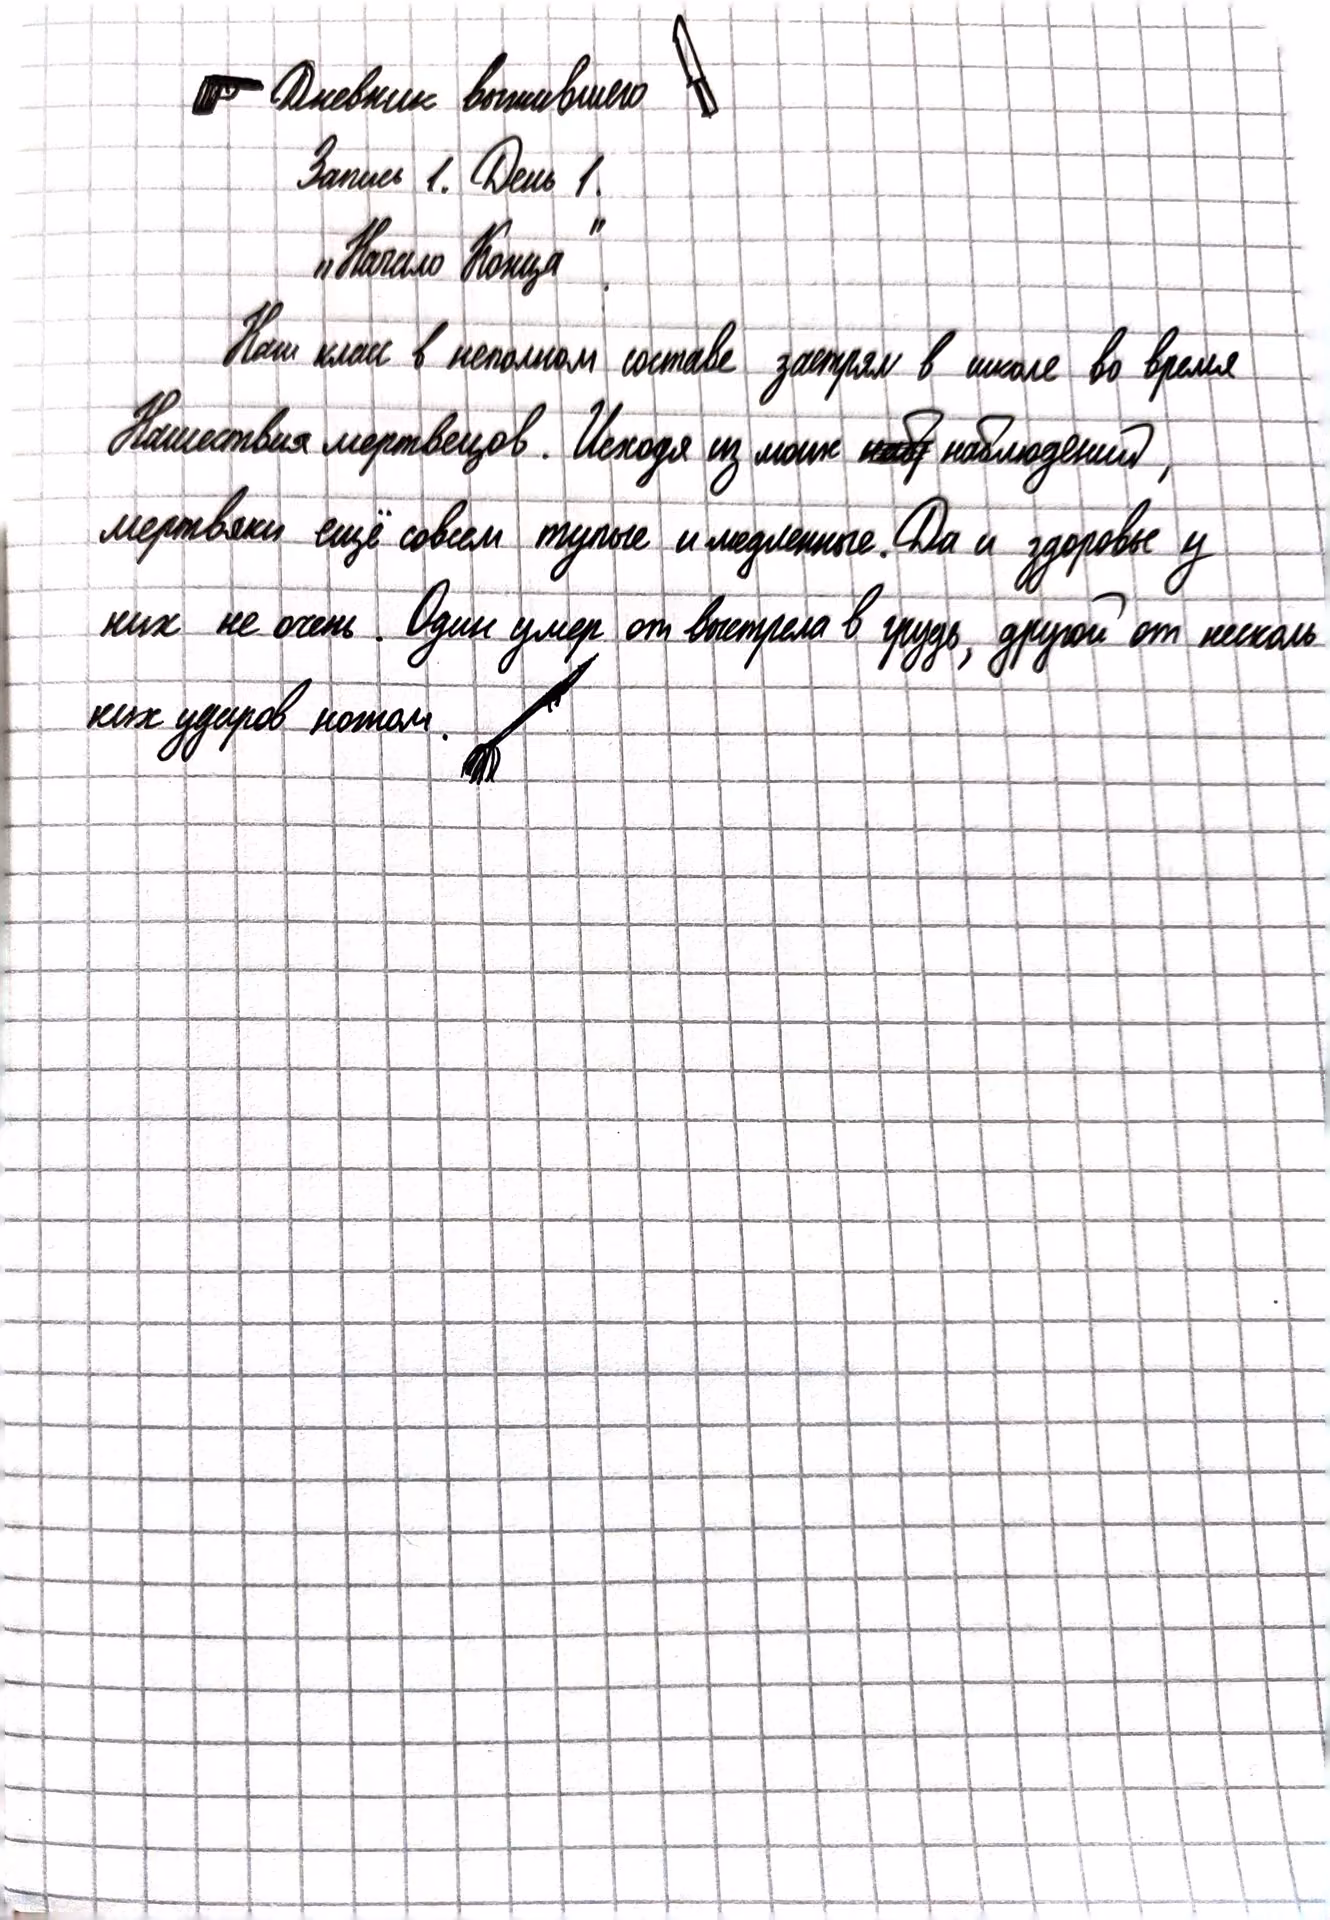 Дневник выжившего
Запись 1. День 1.
„Начало Конца".
Наш класс в неполном составе застрял в школе во время
Нашествия мертвецов. Исходя из моих наблюдений,
мертвяки ещё совсем тупые и медленные. Да и здоровье у
них не очень. Один умер от выстрела в грудь, другой от несколь
ких ударов ножом.